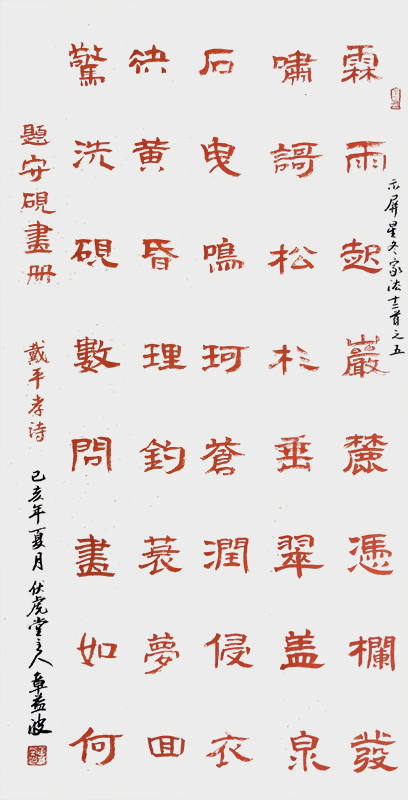 霖雨起巖麓憑欄發
嘯謌松杉垂翠盖泉
石曳鳴珂蒼潤侵衣
袂黄昏理釣蓑夢回
驚洗硯數問畫如何
屏星冬家法首之五
題安硯畫册
戴平孝诗
己亥年夏月伏虎堂主人章益波